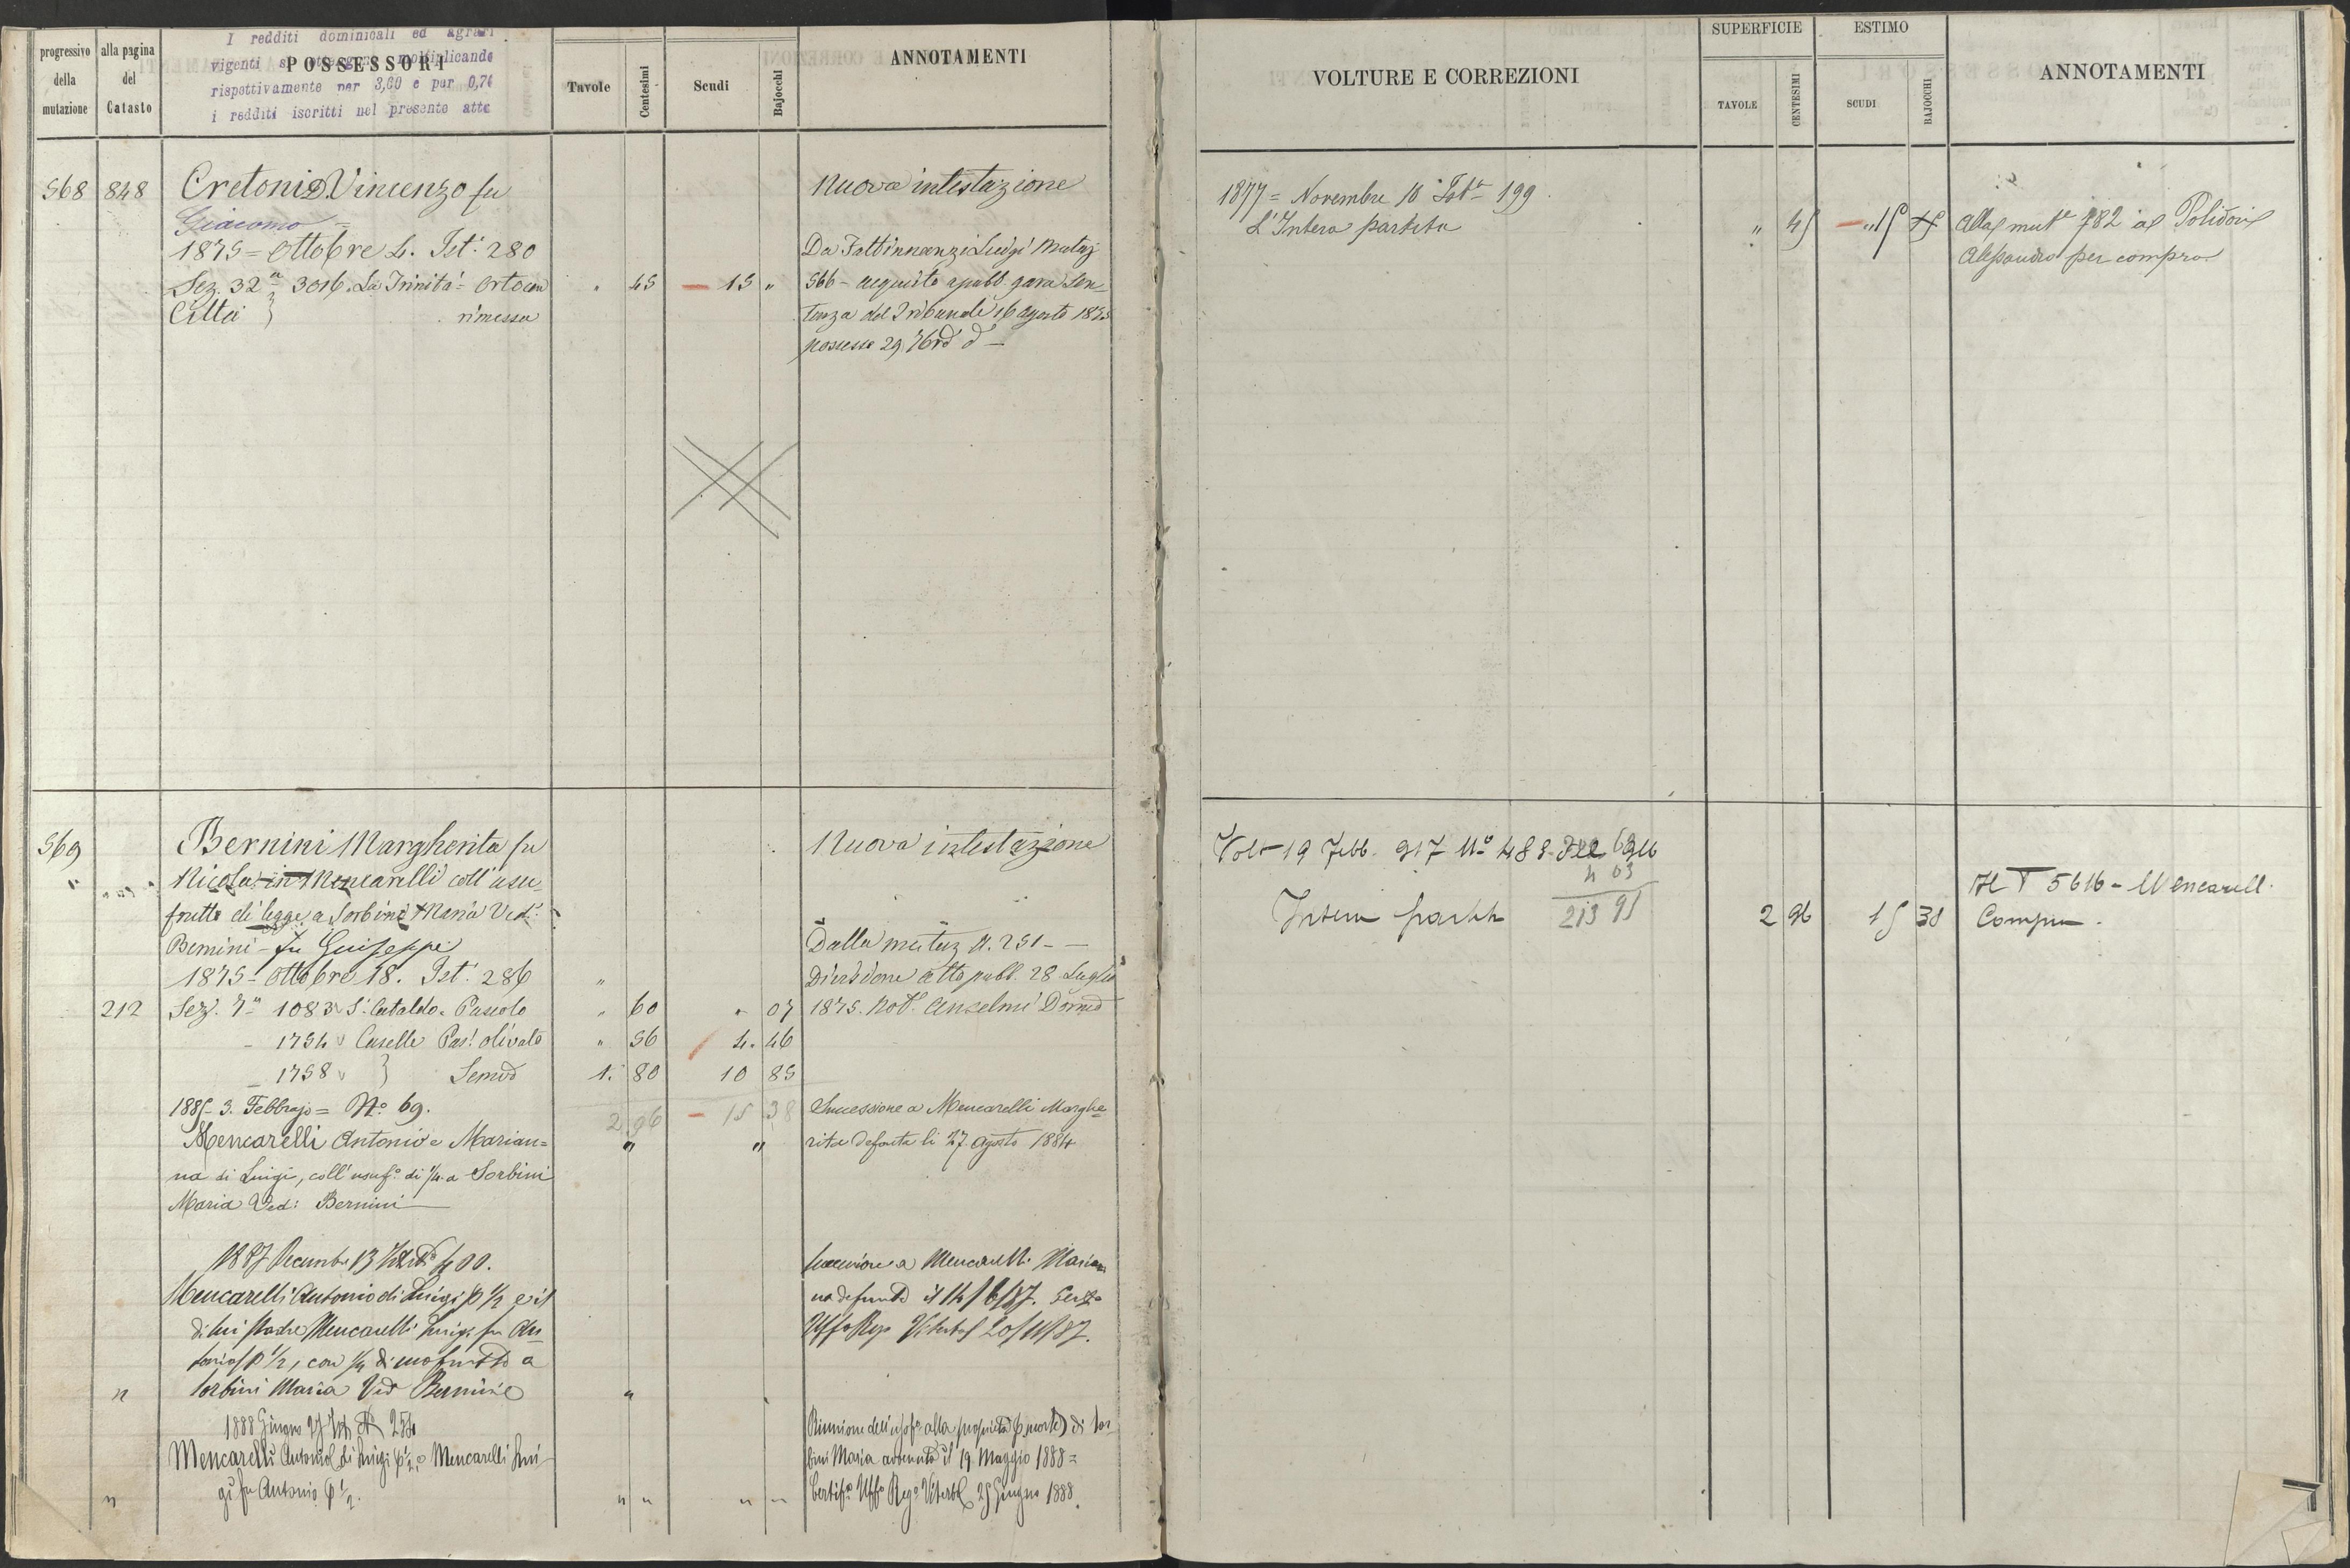 progressivo
della
mutazione
alla pagina
del
Catasto
I redditi dominicali ed agrari
vigenti si ottengono moltiplicando
rispettivamente per 3,60 e per 0,74
i redditi iscritti nel presente atto
POSSESSORI
Tavole
Centesimi
Scudi
Bajocchi
ANNOTAMENTI
568 848 Cretoni D. Vincenzo fu
Giacomo =
Nuova intestazione
1875 = Ottobre 4. Ist: 280
Sez. 32a 3016. La Trinità = Orto con " 45 — 15 "
Città rimessa
Da Fattinnanzi Luigi Mutaz
566 - acquisto a pubb. gara Sen
tenza del Tribunale 16 Agosto 1875
possesso 29
569 Bernini Margherita fu
Nicola in Mencarelli coll'usu
frutto di legge a Sorbini Maria Ved:
Bernini - fu Guiseppe
Nuova intestazione
1875 - Ottobre 18. Ist: 286 "
212 Sez. 1083 S. Cataldo = Pascolo " 60 " 07
- 1754 Caselle Pas: olivato " 56 4. 46
- 1758 } Semvo 1. 80 10 85
2 96 — 15 38
Dalla mutaz N. 251 -
Divisione atto pubb. 28 Luglio
1875. Not. Anselmi
1885 - 3. Febbrajo = No. 69.
Mencarelli Antonio e Marian=
na di Luigi, coll'usufo. di 1/4 a Sorbini
Maria Ved: Bernini
" "
Successione a Mencarelli Marghe=
rita defonta li 27 Agosto 1884
1887 Decembre 13 400.
Mencarelli Antonio di Luigi p 1/2 e il
di lui Padre Mencarelli Luigi fu An
tonio p 1/2, con 1/4 di usofrutto a
n Sorbini Maria Ved Bernini "
Successione a Mencarelli Marian
na defunta il 14/6/87.
Uffo Rego Viterbo 20/11/87.
1888 Giugno 27 No 254
Mencarelli Antonio di Luigi p 1/2 e Mencarelli Lui
n gi fu Antonio p 1/2. " " " "
Riunione dell'usofo alla proprietà p morte di Sor
bini Maria avvenuta il 19 Maggio 1888 =
Certifo Uffo Rego Viterbo 25 Giugno 1888.
VOLTURE E CORREZIONI
SUPERFICIE
TAVOLE
CENTESIMI
ESTIMO
SCUDI
BAJOCCHI
ANNOTAMENTI
1877 = Novembre 18 Ista 199
L'Intera partita " 45 — 15
Alla muta 782 a Polidori
Alessandro per compra
Volt 19 Febb. 917 No 483
4 03
Intera partita 213 95 2 96 15 38
Al T 5616 - Mencarell.
Compra.